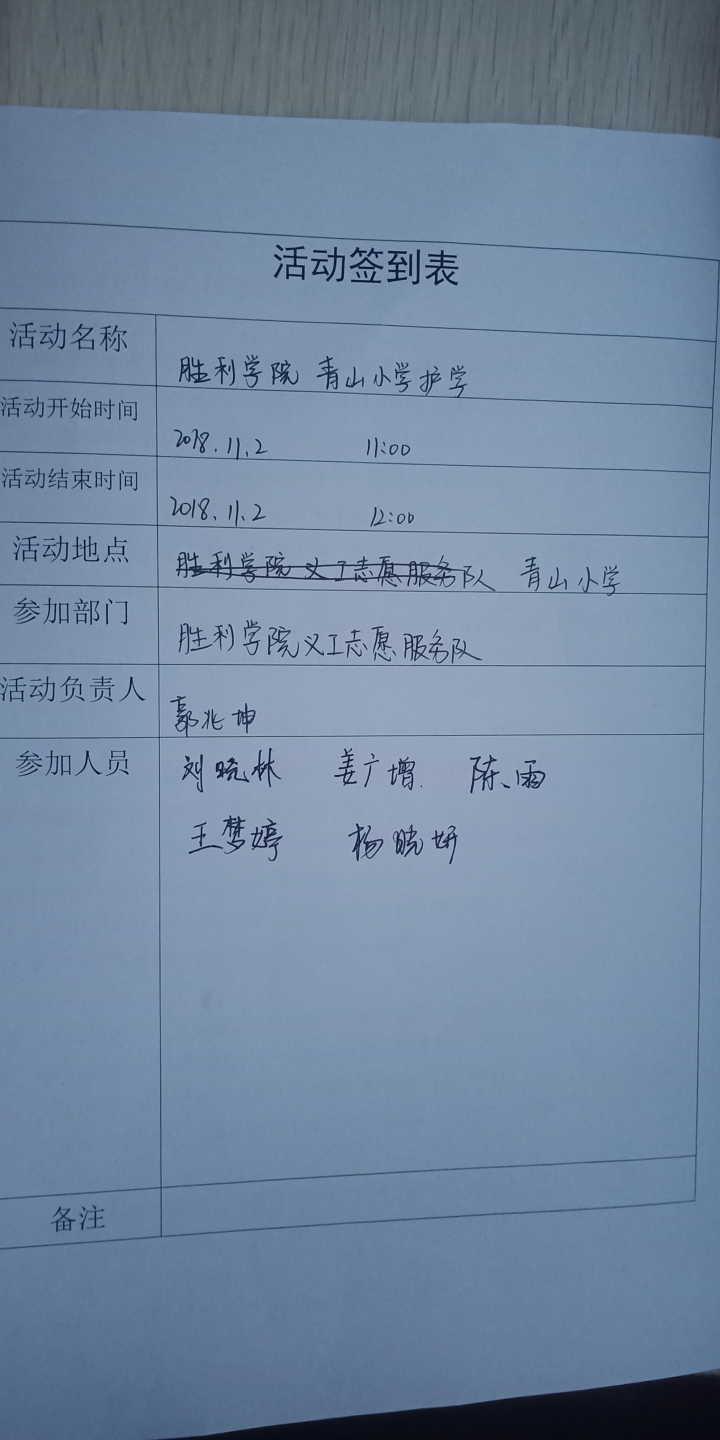 活动签到表
活动名称 胜利学院 青山小学护学
活动开始时间 2018.11.2 11:00
活动结束时间 2018.11.2 12:00
活动地点 胜利学院义工志愿服务队 青山小学
参加部门 胜利学院义工志愿服务队
活动负责人 郭兆坤
参加人员 刘晓林 姜广增 陈雨
王梦婷 杨晓妍
备注